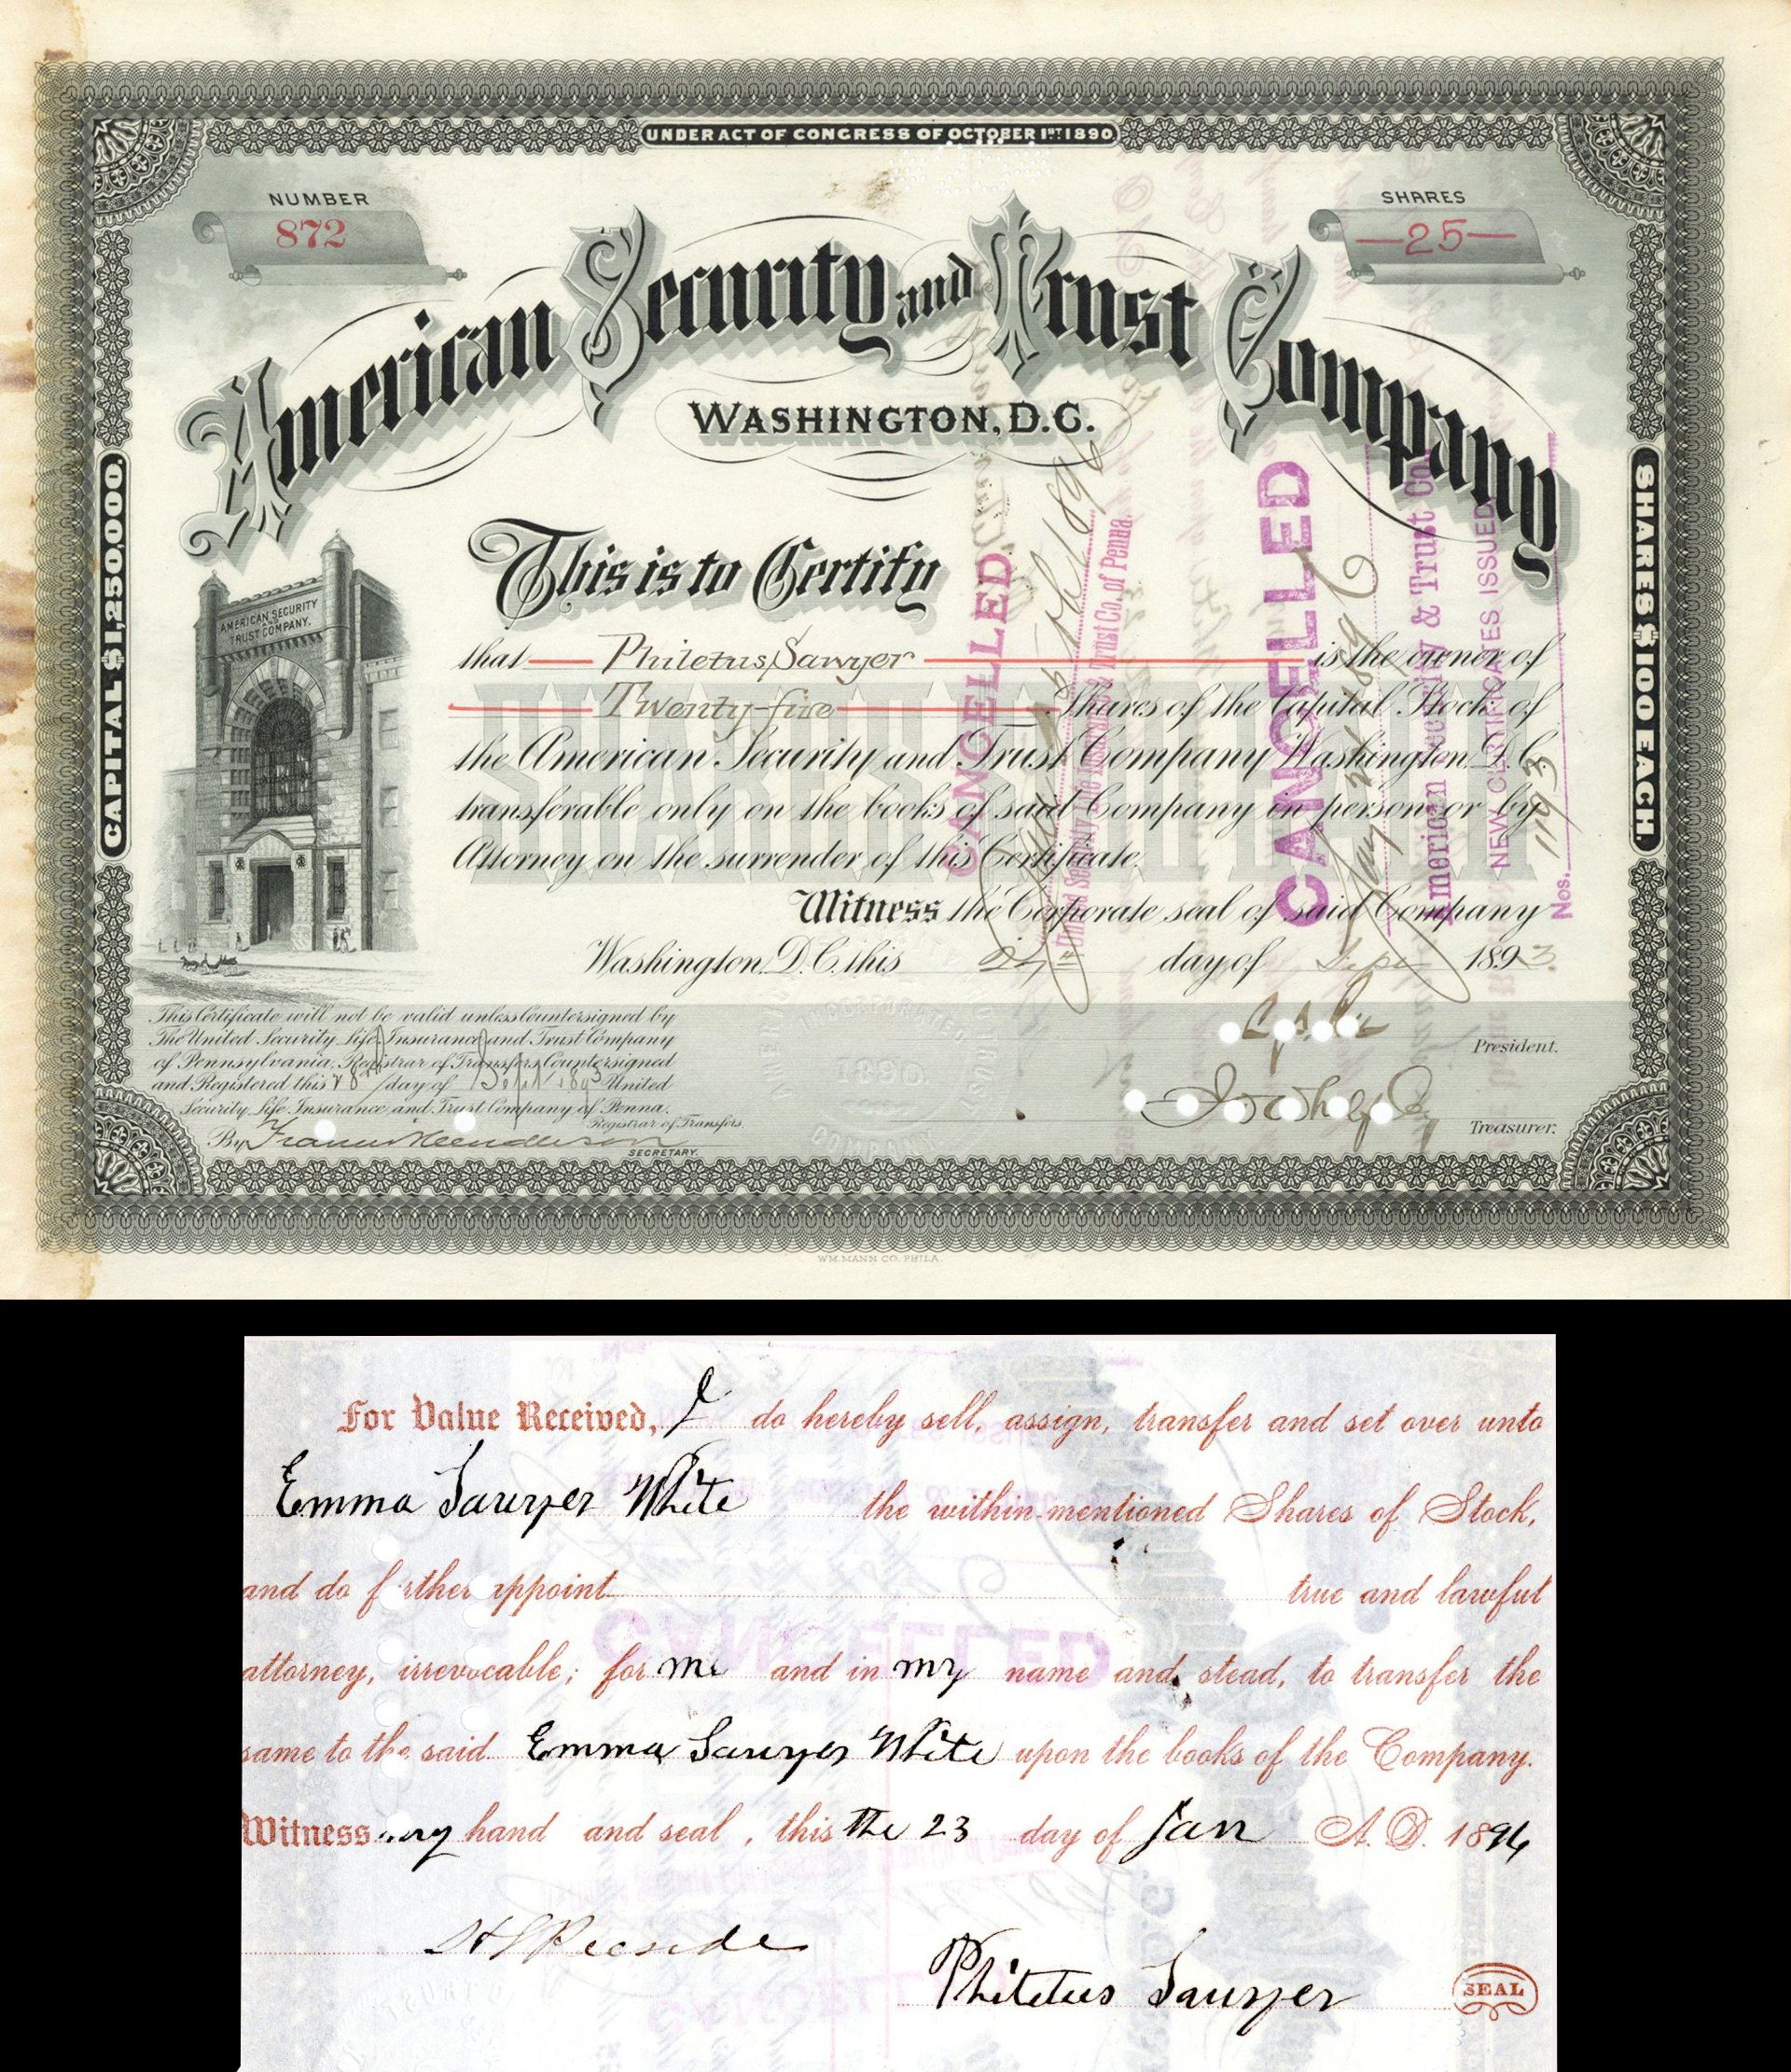 UNDER ACT OF CONGRESS OF OCTOBER 1ST 1890
NUMBER
872
SHARES
—25—
American Security and Trust Company
WASHINGTON, D.C.
CAPITAL $1,250,000.
SHARES $100 EACH.
AMERICAN SECURITY
AND
TRUST COMPANY.
This is to Certify
that Philetus Sawyer is the owner of
Twenty-five Shares of the Capital Stock of
the American Security and Trust Company Washington, D.C.
transferable only on the books of said Company in person or by
Attorney on the surrender of this Certificate.
Witness the Corporate seal of said Company
Washington, D.C. this day of Sept 1893.
President.
Treasurer.
This Certificate will not be valid unless countersigned by
The United Security Life Insurance and Trust Company
of Pennsylvania, Registrar of Transfers Countersigned
and Registered this 28th day of Sept 1893 United
Security Life Insurance and Trust Company of Penna.
Registrar of Transfers.
By
SECRETARY.
1890
COMPANY
CANCELLED
United Security Life Insurance & Trust Co. of Penna.
CANCELLED
American Security & Trust Co.
NEW CERTIFICATES ISSUED
Nos. 1193
WM. MANN CO. PHILA.
For Value Received, I do hereby sell, assign, transfer and set over unto
Emma Sawyer White the within mentioned Shares of Stock,
and do further appoint true and lawful
attorney, irrevocable; for me and in my name and stead, to transfer the
same to the said Emma Sawyer White upon the books of the Company.
Witness my hand and seal, this the 23 day of Jan A.D. 1896
Philetus Sawyer
SEAL